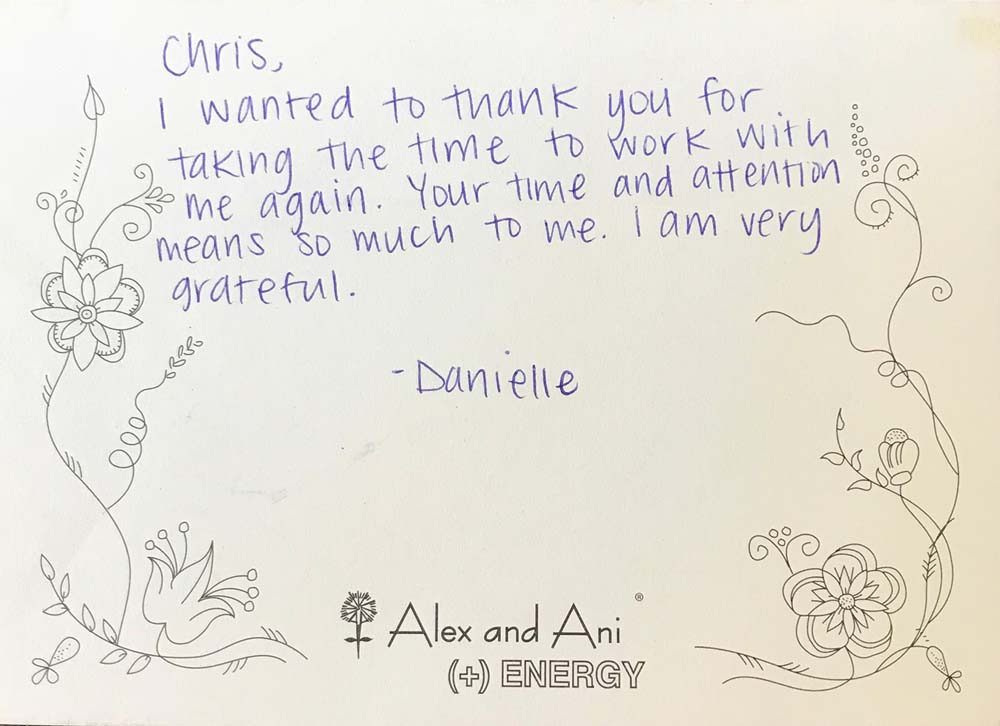 Chris,
I wanted to thank you for
taking the time to work with
me again. Your time and attention
means so much to me. I am very
grateful.
-Danielle
Alex and Ani ®
(+) ENERGY